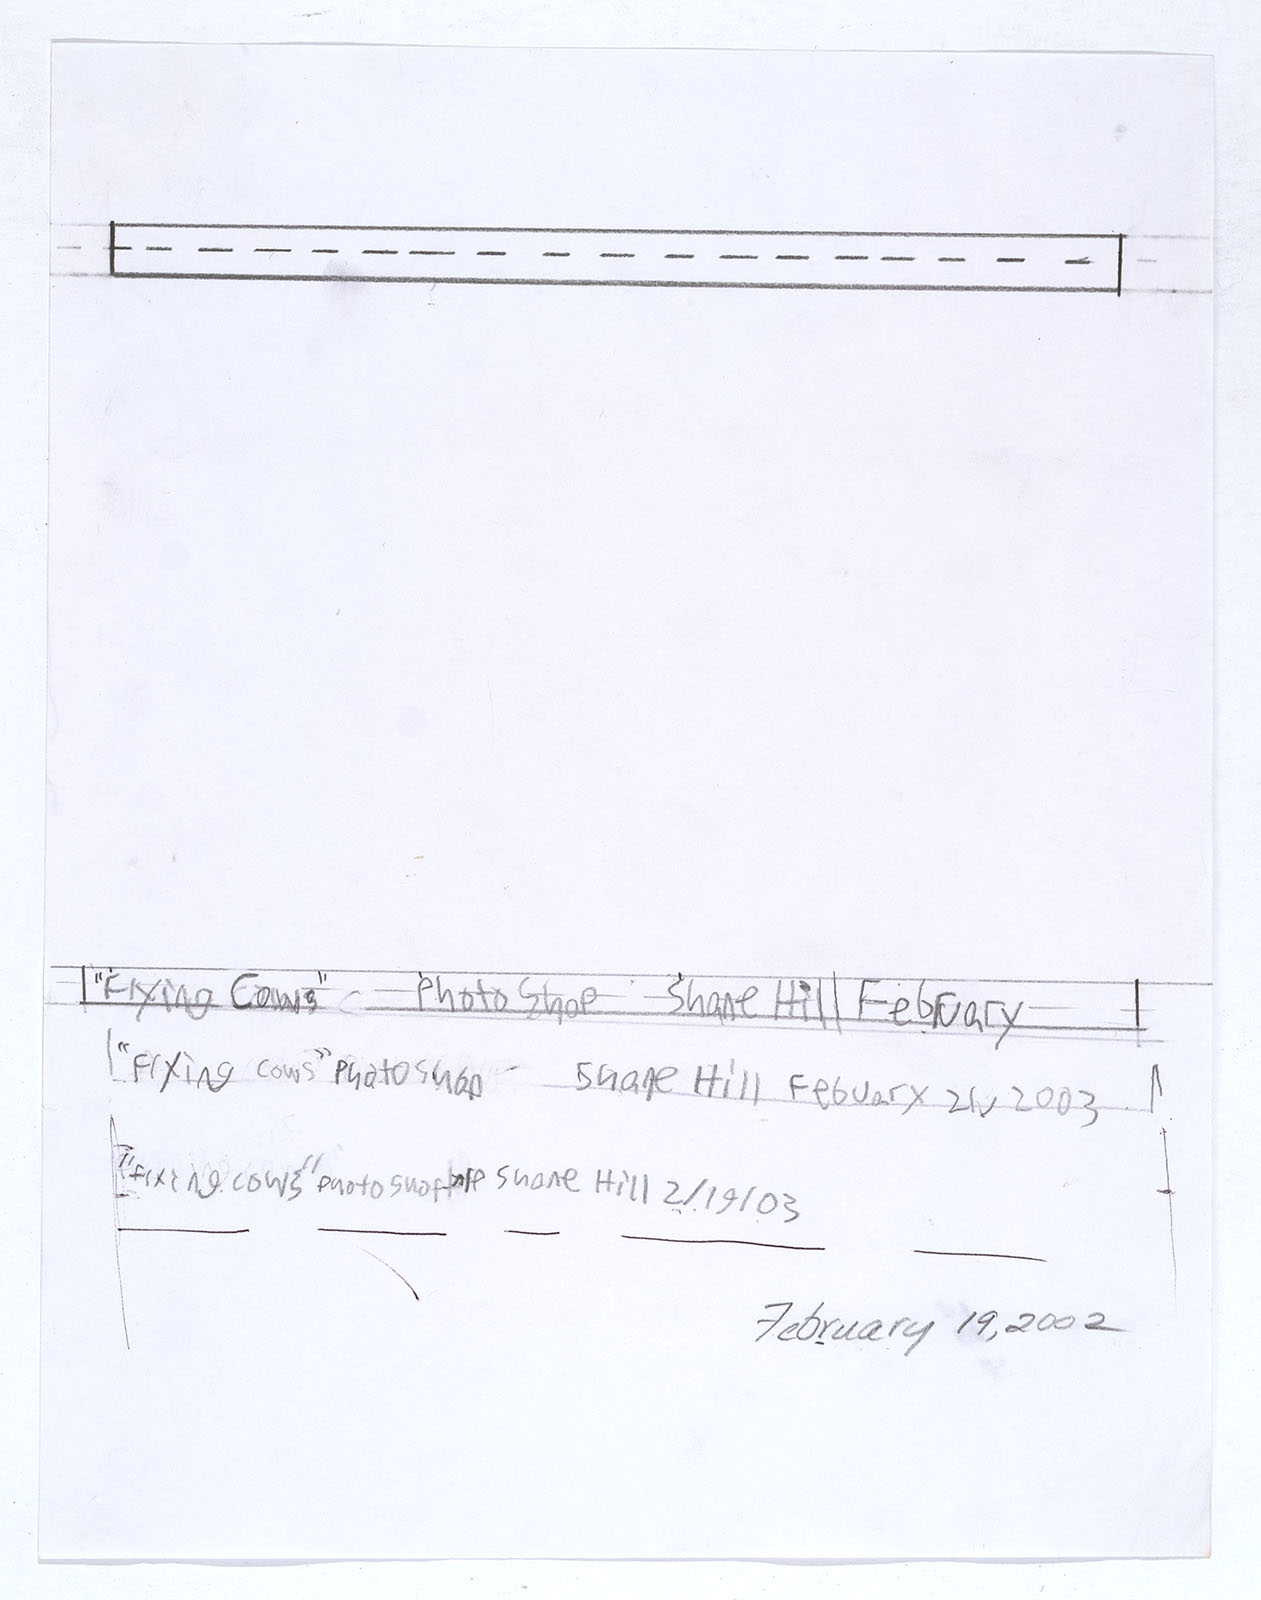 "Fixing Cows" Photo Shop Shane Hill February
"Fixing cows" Photo Shop - Shane Hill Febuary 21, 2003
"fixing cows" photo shop Shane Hill 2/19/03
February 19, 2002